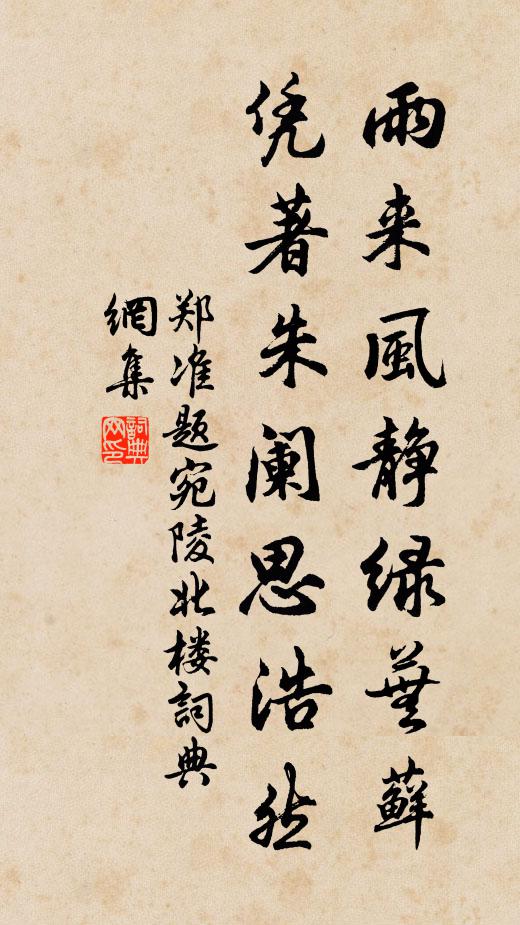 雨来風静绿蕪蘚
凭著朱阑思浩然
郑准题宛陵北楼詞典
網集
詞典網印